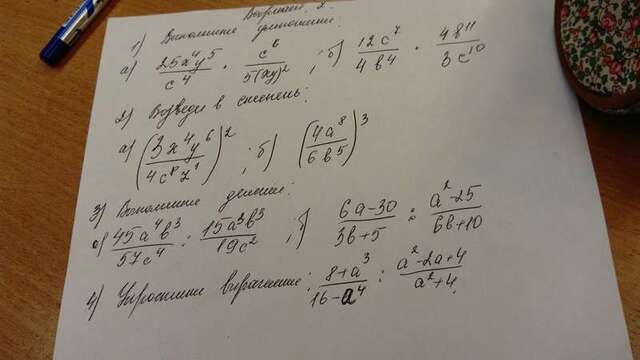 Вариант 2.
1) Выполните умножение:
а) \frac{25x^4y^5}{c^4} \cdot \frac{c^6}{5(xy)^2} ; б) \frac{12c^7}{4b^4} \cdot \frac{4b^{11}}{3c^{10}}
2) Возведи в степень:
а) \left(\frac{3x^4y^6}{4c^8z^1}\right)^2 ; б) \left(\frac{4a^8}{6b^5}\right)^3
3) Выполните деление:
а) \frac{45a^4b^3}{57c^4} : \frac{15a^3b^3}{19c^2} ; б) \frac{6a-30}{3b+5} : \frac{a^2-25}{6b+10}
4) Упростите выражение: \frac{8+a^3}{16-a^4} : \frac{a^2-2a+4}{a^2+4}.